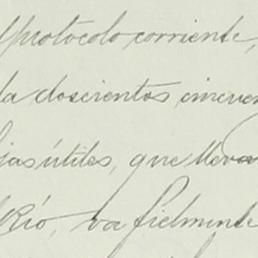 protocolo corriente,
da doscientos cincuen
jas útiles, que lleva
Río, va fielmente